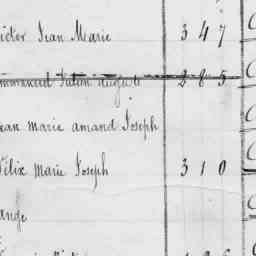 ictor Jean Marie 347
mmanuel Julien auguste 285
ean marie amand Joseph
Félix Marie Joseph 310
ange